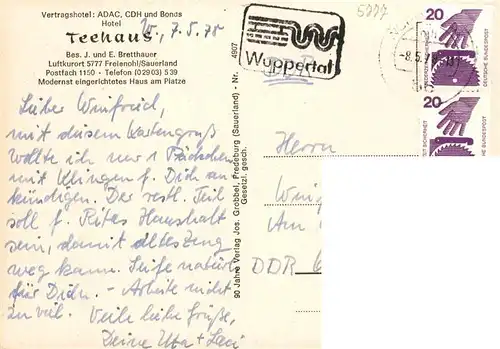 Vertragshotel: ADAC, CDH und Bonds
Hotel
Teehaus
Bes. J. und E. Bretthauer
Luftkurort 5777 Freienohl/Sauerland
Postfach 1150 - Telefon (02903) 539
Modernst eingerichtetes Haus am Platze
7.5.78
Liebe Winfried,
mit diesem Kartengruß
wollte ich nur 1 Päckchen
mit Klingen f. Dich an-
kündigen. Der restl. Teil
soll f. Ritas Haushalt
sein, damit altes Zeug
weg kann. Seife natürl.
für Dich. - Arbeite nicht
zu viel. Viele liebe Grüße,
Deine Uta +
90 Jahre Verlag Jos. Grobbel, Fredeburg (Sauerland) - Nr. 4907
Gesetzl. gesch.
5777
Wuppertal
-8.5.78
20
DEUTSCHE BUNDESPOST
20
DEUTSCHE BUNDESPOST
Herrn
Am
DDR